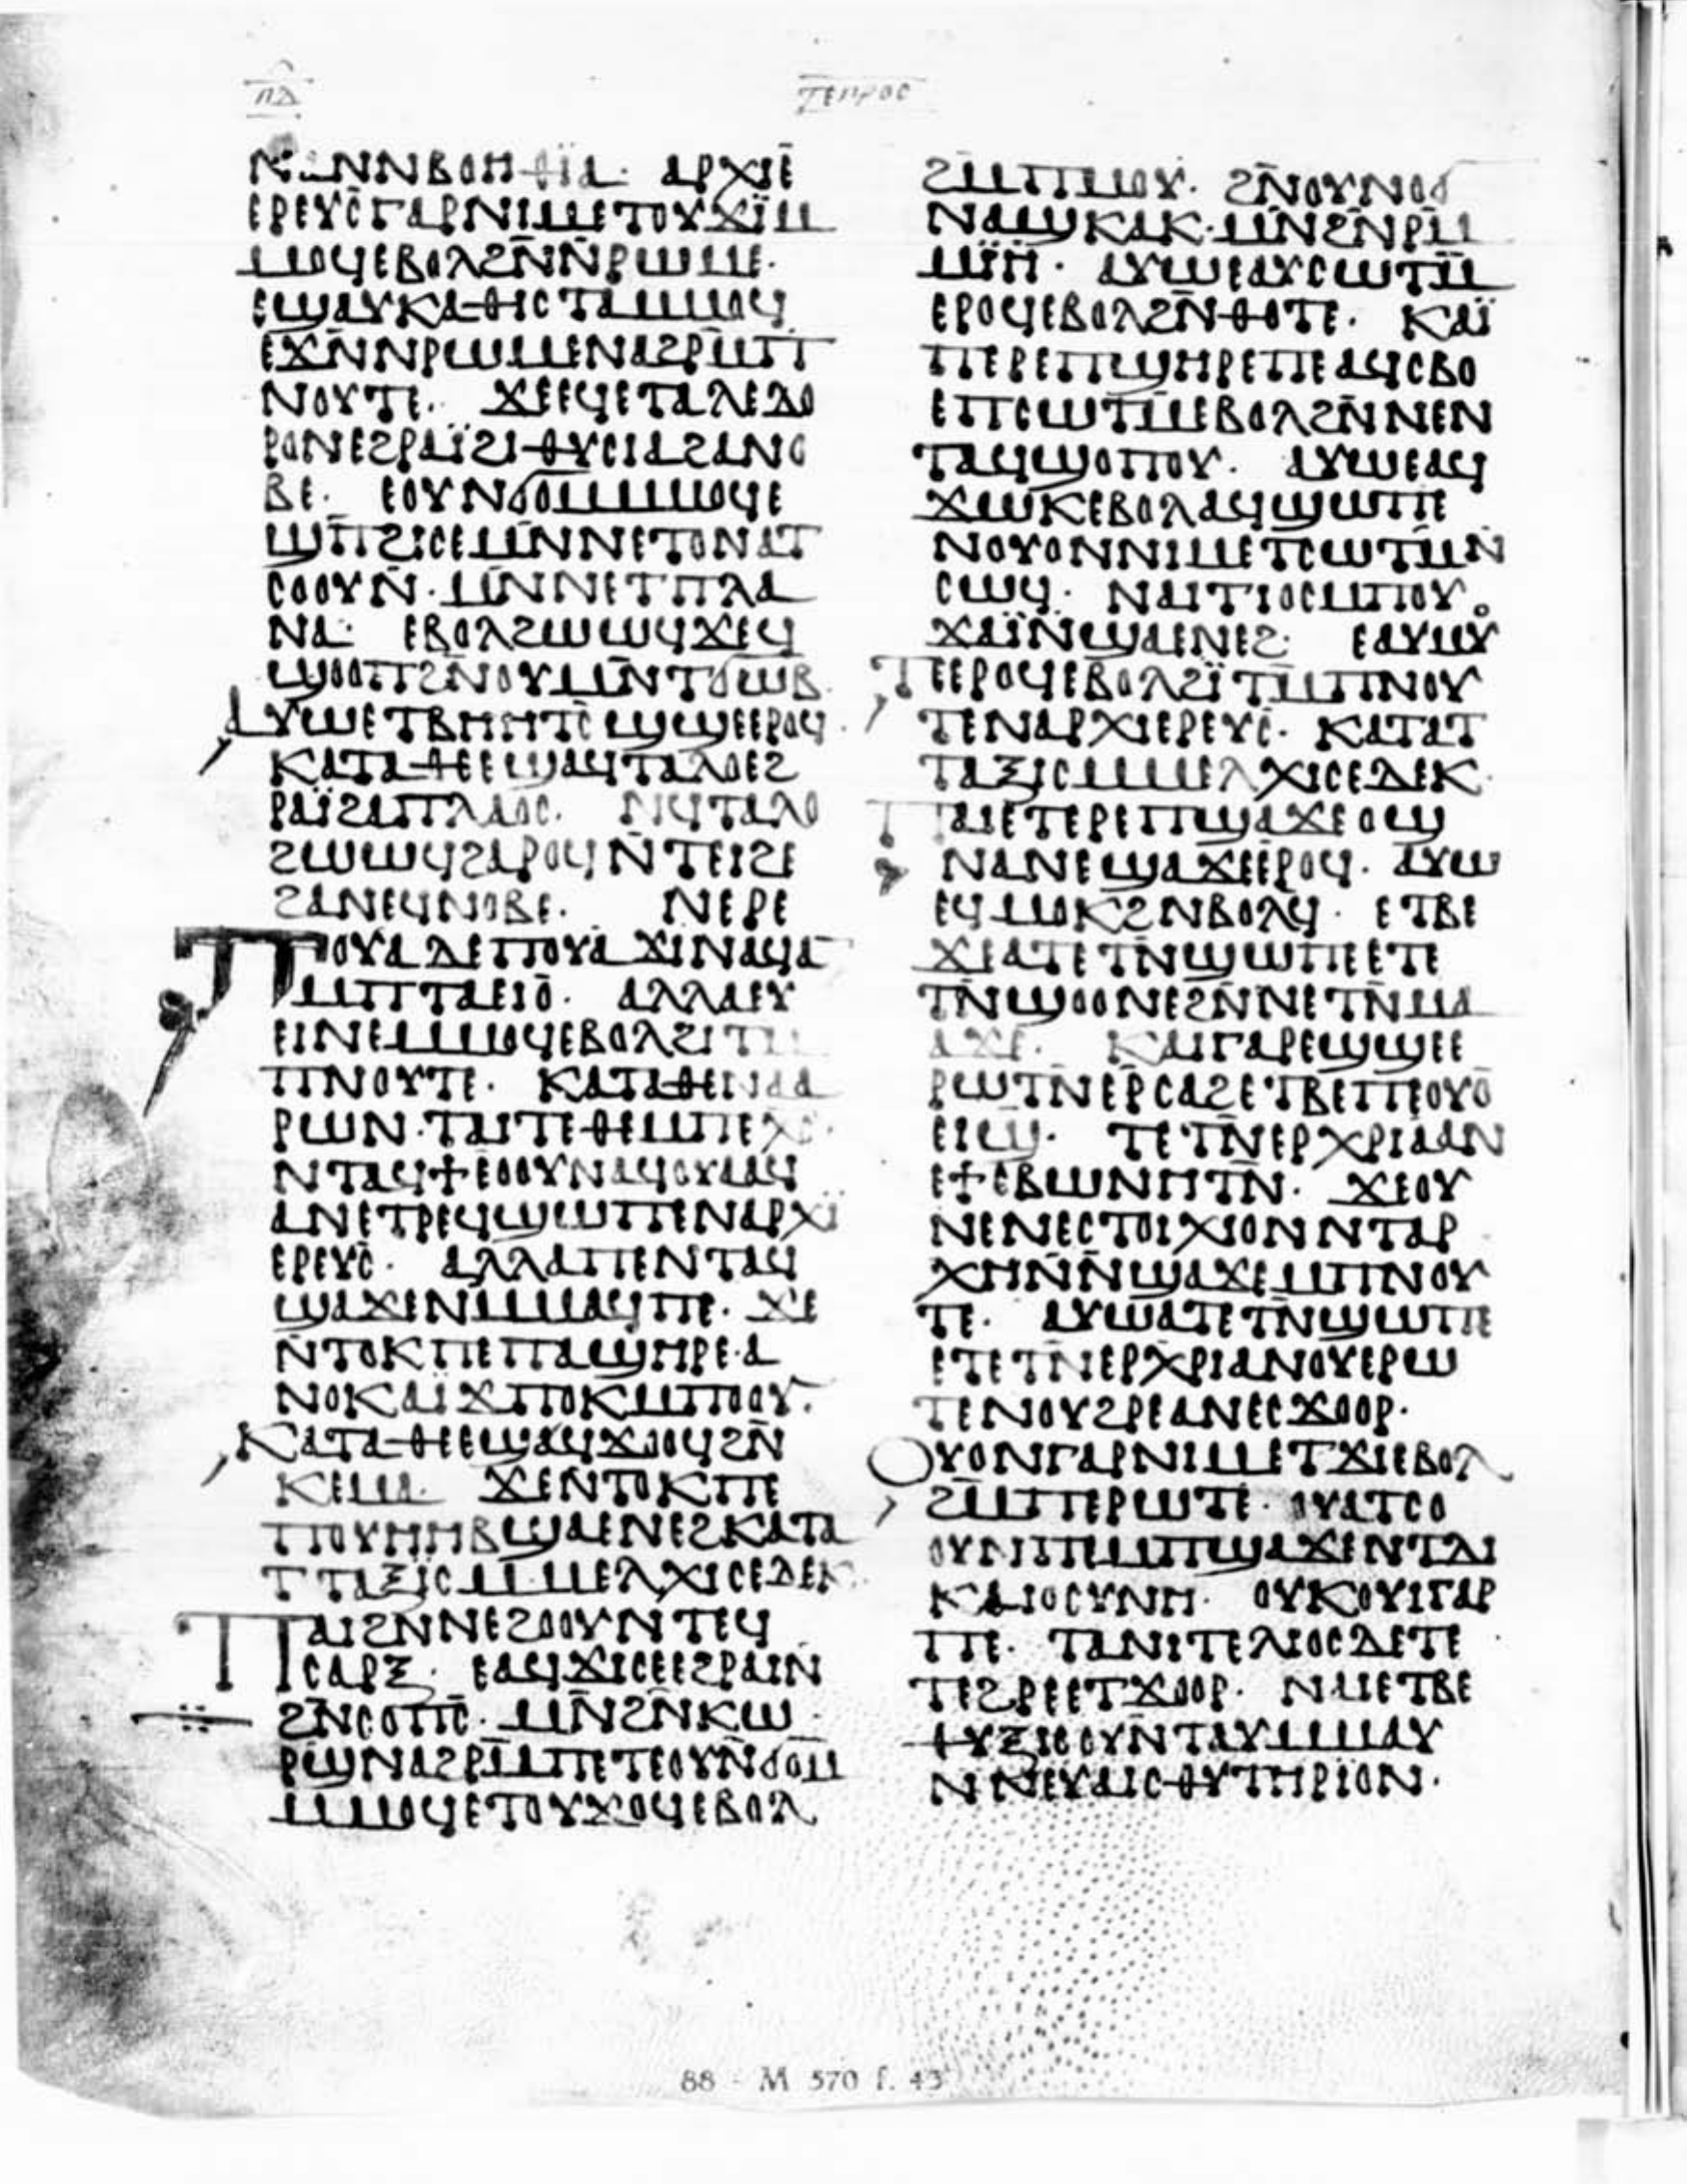 ⲡⲇ
ⲧⲉⲡⲣⲟⲥ
ⲛⲛⲃⲟⲏⲑⲓⲁ· ⲁⲣⲭⲓⲉ̄
ⲉⲣⲉⲩⲥ̄ⲅⲁⲣⲛⲓⲙⲉⲧⲟⲩϫⲓ̈ⲙ
ⲙⲟϥⲉⲃⲟⲗϩⲛ̄ⲛ̄ⲣⲱⲙⲉ·
ⲉϣⲁⲩⲕⲁⲑⲓⲥⲧⲁⲙⲙⲟϥ
ⲉϫⲛ̄ⲛⲣⲱⲙⲉⲛⲁϩⲣⲙ̄ⲡ
ⲛⲟⲩⲧⲉ· ϫⲉⲉϥⲉⲧⲁⲗⲉⲇⲟ
ⲣⲟⲛⲉϩⲣⲁⲓ̈ϩⲓⲑⲩⲥⲓⲁϩⲁⲛⲟ
ⲃⲉ· ⲉⲟⲩⲛϭⲟⲙⲙⲙⲟϥⲉ
ϣⲡ̄ϩⲓⲥⲉⲙⲛ̄ⲛⲉⲧⲟⲛⲁⲧ
ⲥⲟⲟⲩⲛ̄· ⲙⲛ̄ⲛⲉⲧⲡⲗⲁ
ⲛⲁ· ⲉⲃⲟⲗϩⲱⲱϥϫⲉϥ
ϣⲟⲟⲡϩⲛ̄ⲟⲩⲙⲛ̄ⲧϭⲱⲃ·
ⲁⲩⲱⲉⲧⲃⲏⲏⲧⲥ̄ϣϣⲉⲉⲣⲟϥ·
ⲕⲁⲧⲁⲑⲉⲉϣⲁϥⲧⲁⲗⲟⲉϩ
ⲣⲁⲓ̈ϩⲁⲡⲗⲁⲟⲥ· ⲛϥⲧⲁⲗⲟ
ϩⲱⲱϥϩⲁⲣⲟϥⲛ̄ⲧⲉⲓϩⲉ
ϩⲁⲛⲉϥⲛⲟⲃⲉ· ⲛⲉⲣⲉ
ⲡⲟⲩⲁⲇⲉⲡⲟⲩⲁϫⲓⲛⲁϥⲁ
ⲙⲡⲧⲁⲉⲓⲟ̄· ⲁⲗⲗⲁⲉⲩ
ⲉⲓⲛⲉⲙⲙⲟϥⲉⲃⲟⲗϩⲓⲧⲙ
ⲡⲛⲟⲩⲧⲉ· ⲕⲁⲧⲁⲑⲉⲛⲁⲁ
ⲣⲱⲛ·ⲧⲁⲓⲧⲉⲑⲉⲙⲡⲉⲭⲥ·
ⲛⲧⲁϥϯⲉⲟⲟⲩⲛⲁϥⲟⲩⲁⲁϥ
ⲁⲛⲉⲧⲣⲉϥϣⲱⲡⲉⲛⲁⲣⲭⲓ̈
ⲉⲣⲉⲩⲥ̄· ⲁⲗⲗⲁⲡⲉⲛⲧⲁϥ
ϣⲁϫⲉⲛⲙⲙⲁϥⲡⲉ· ϫⲉ
ⲛ̄ⲧⲟⲕⲡⲉⲡⲁϣⲏⲣⲉ·ⲁ
ⲛⲟⲕⲁⲓ̈ϫⲡⲟⲕⲙⲡⲟⲟⲩ·
ⲕⲁⲧⲁⲑⲉⲉϣⲁϥϫⲟⲟϥϩⲛ̄
ⲕⲉⲙⲁ ϫⲉⲛⲧⲟⲕⲡⲉ
ⲡⲟⲩⲏⲏⲃϣⲁⲉⲛⲉϩⲕⲁⲧⲁ
ⲧⲧⲁⲝⲓ̈ⲥⲙ̄ⲙⲉⲗⲭⲓⲥⲉⲇⲉⲕ·
ⲡⲁⲓϩⲛⲛⲉϩⲟⲟⲩⲛⲧⲉϥ
ⲥⲁⲣⲝ· ⲉⲁϥϫⲓⲥⲉⲉϩⲣⲁⲓⲛ
ϩⲛ̄ⲥⲟⲡⲥ̄· ⲙⲛ̄ϩⲛ̄ⲕⲱ
ⲣϣ̄ⲛⲁϩⲣⲙ̄ⲡⲉⲧⲉⲟⲩⲛ̄ϭⲟⲙ
ⲙⲙⲟϥⲉⲧⲟⲩϫⲟϥⲉⲃⲟⲗ
ϩⲙⲡⲙⲟⲩ· ϩⲛ̄ⲟⲩⲛⲟϭ
ⲛⲁϣⲕⲁⲕ·ⲙⲛ̄ϩⲛ̄ⲣⲙ̄
ⲙⲓ̈ⲏ· ⲁⲩⲱⲉⲁⲩⲥⲱⲧⲙ̄
ⲉⲣⲟϥⲉⲃⲟⲗϩⲛ̄ⲑⲟⲧⲉ· ⲕⲁⲓ̈
ⲡⲉⲣⲉⲡϣⲏⲣⲉⲡⲉⲁϥⲥⲃⲟ
ⲉⲡⲥⲱⲧⲙ̄ⲉⲃⲟⲗϩⲛ̄ⲛⲉⲛ
ⲧⲁϥϣⲟⲡⲟⲩ· ⲁⲩⲱⲉⲁϥ
ϫⲱⲕⲉⲃⲟⲗⲁϥϣⲱⲡⲉ
ⲛⲟⲩⲟⲛⲛⲓⲙⲉⲧⲥⲱⲧⲙ̄ⲛ̄
ⲥⲱϥ· ⲛⲁⲓⲧⲓⲟⲥⲙⲡⲟⲩ
ϫⲁⲓ̈ⲛ̄ϣⲁⲉⲛⲉϩ· ⲉⲁⲩⲙⲟⲩ
ⲧⲉⲉⲣⲟϥⲉⲃⲟⲗϩⲓ̈ⲧⲙⲡⲛⲟⲩ
ⲧⲉⲛⲁⲣⲭⲓⲉⲣⲉⲩⲥ̄· ⲕⲁⲧⲁⲧ
ⲧⲁⲝⲓⲥⲙⲙⲉⲗⲭⲓⲥⲉⲇⲉⲕ·
ⲡⲁⲓⲉⲧⲉⲣⲉⲡϣⲁϫⲉⲟϣ
ⲛⲁⲛⲉϣⲁϫⲉⲉⲣⲟϥ· ⲁⲩⲱ
ⲉϥⲙⲟⲕϩⲛⲃⲟⲗϥ· ⲉⲧⲃⲉ
ϫⲉⲁⲧⲉⲧⲛ̄ϣⲱⲡⲉⲉⲧⲉ
ⲧⲛ̄ϣⲟⲟⲛⲉϩⲛ̄ⲛⲉⲧⲛ̄ⲙⲁ
ⲁϫⲉ· ⲕⲁⲓⲅⲁⲣⲉϣϣⲉⲉ
ⲣⲱⲧⲛ̄ⲉⲣ̄ⲥⲁϩⲉⲧⲃⲉⲡⲉⲟⲩⲟ̄
ⲉⲓϣ̄· ⲧⲉⲧⲛ̄ⲉⲣⲭⲣⲓⲁⲁⲛ
ⲉϯⲥⲃⲱⲛⲏⲧⲛ̄· ϫⲉⲟⲩ
ⲛⲉⲛⲉⲥⲧⲟⲓⲭⲓⲟⲛⲛⲧⲁⲣ
ⲭⲏⲛ̄ⲛ̄ϣⲁϫⲉⲙⲡⲛⲟⲩ
ⲧⲉ· ⲁⲩⲱⲁⲧⲉⲧⲛ̄ϣⲱⲡⲉ
ⲉⲧⲉⲧⲛ̄ⲉⲣⲭⲣⲓⲁⲛⲟⲩⲉⲣⲱ
ⲧⲉⲛⲟⲩϩⲣⲉⲁⲛⲉⲥϫⲟⲟⲣ·
ⲟⲩⲟⲛⲅⲁⲣⲛⲓⲙⲉⲧϫⲓⲉⲃⲟⲗ
ϩⲙ̄ⲡⲉⲣⲱⲧⲉ· ⲟⲩⲁⲧⲥⲟ
ⲟⲩⲛⲡⲉⲙⲡϣⲁϫⲉⲛⲧⲇⲓ
ⲕⲁⲓⲟⲥⲩⲛⲏ· ⲟⲩⲕⲟⲩⲓⲅⲁⲣ
ⲡⲉ· ⲧⲁⲛⲓⲧⲉⲗⲓⲟⲥⲇⲉⲧⲉ
ⲧⲉϩⲣⲉⲉⲧϫⲟⲟⲣ· ⲛⲁⲓⲉⲧⲃⲉ
ϯⲩⲝⲓⲥⲟⲩⲛ̄ⲧⲁⲩⲙⲙⲁⲩ
ⲛⲛⲉⲩⲁⲓⲥⲑⲩⲧⲏⲣⲓⲟⲛ·
88 - M 570 f. 43